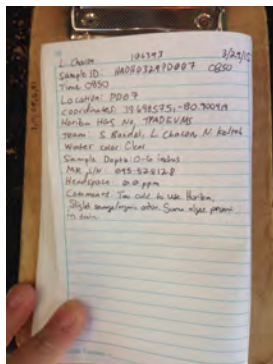 L. Chacon 106393 3/29/15
Sample ID: HAD80329PD007 0850
Time: 0850
Location: PD07
Coordinates: 39.698575, -80.700919
Horiba HGS No, TPADEVMS
Team: S. Bandel, L. Chacon, N. Kaltob
Water color: Clear
Sample Depth: 0-6 inches
MR S/N: 095-528128
Headspace: 0.0 ppm
Comments: Too cold to use Horiba.
Slight sewage/organic odor. Some algae present
in drain.